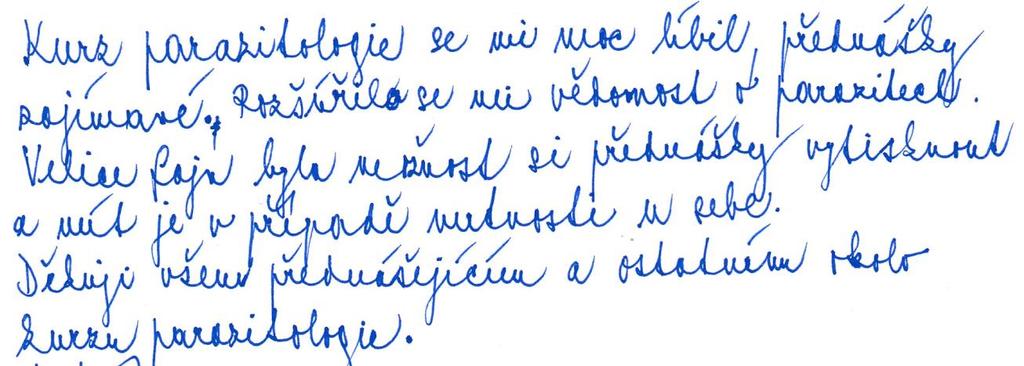 Kurz parazitologie se mi moc líbil, přednášky
zajímavé. Rozšířila se mi vědomost o parazitech.
Velice fajn byla možnost si přednášky vytisknout
a mít je v případě nutnosti u sebe.
Děkuji všem přednášejícím a ostatním okolo
kurzu parazitologie.